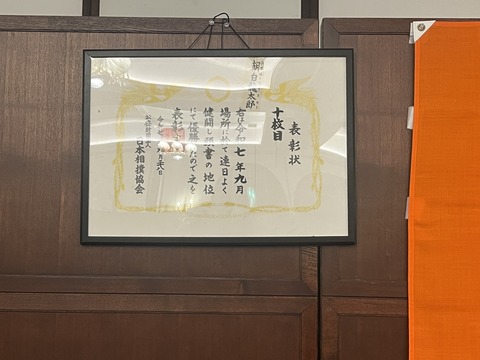 表彰状
十枚目
朝白龍太郎
右は令和七年九月
場所に於て連日よく
健闘し頭書の地位
にて優勝したので之を
表彰する
令和七年九月二十八日
公益財団法人
日本相撲協会